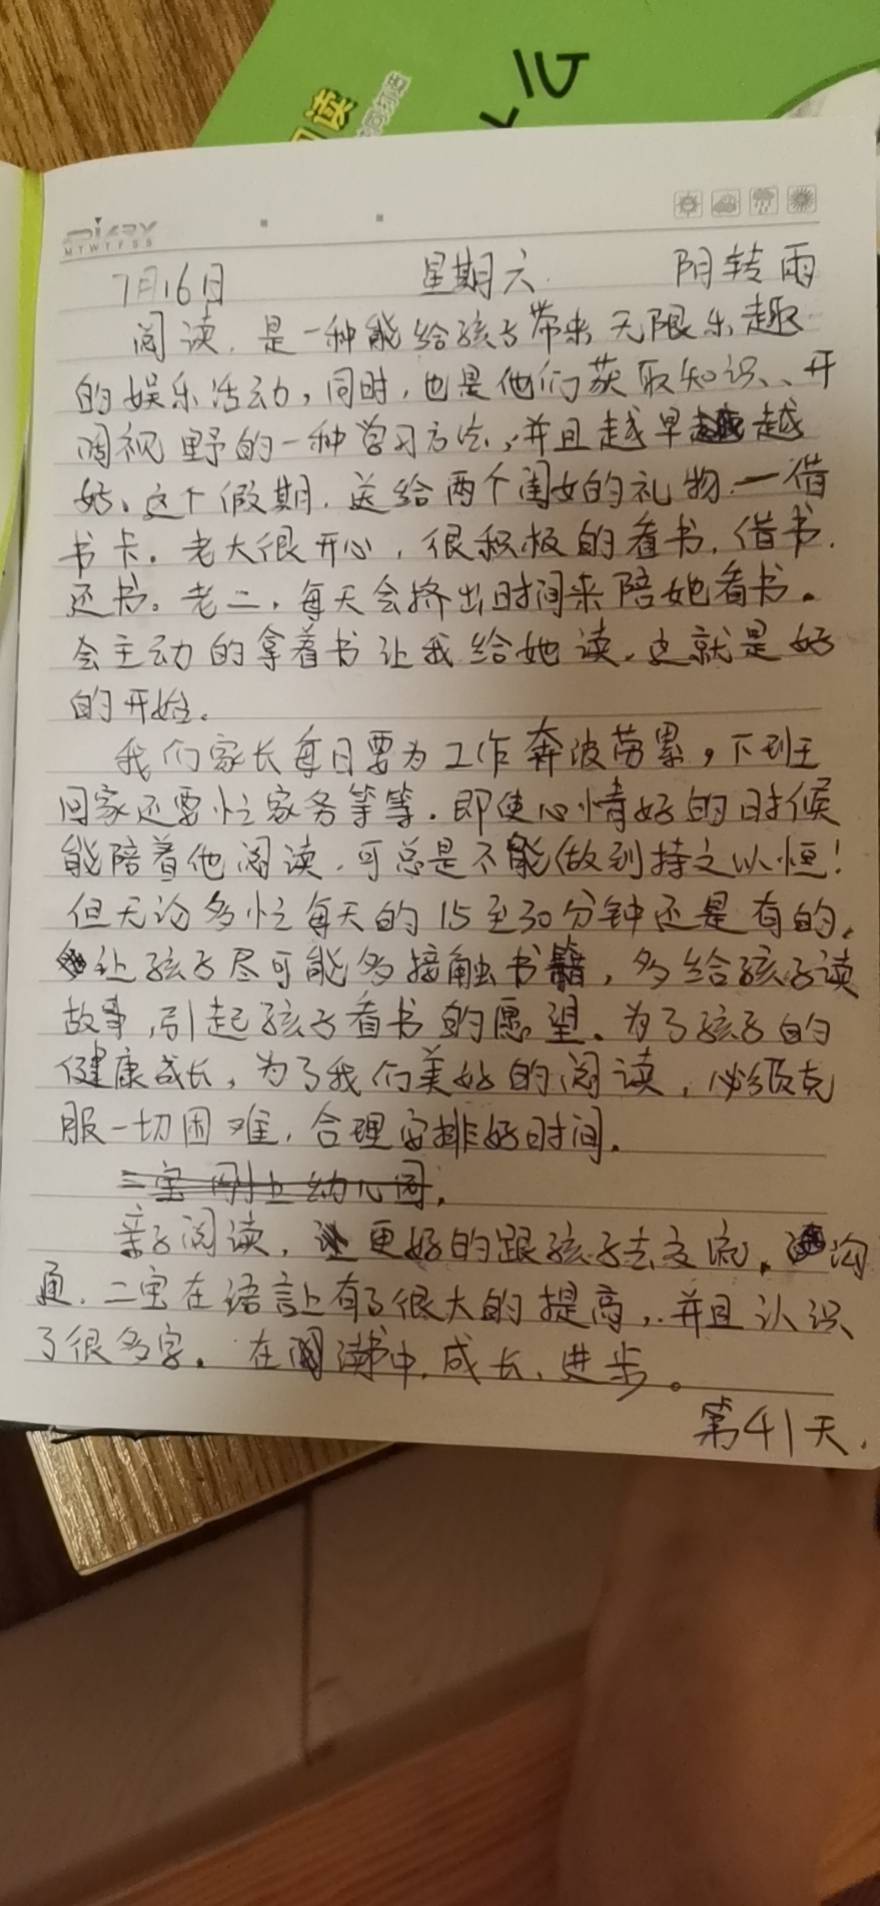 阅读
DIARY
MTWTFSS
7月16日 星期六 阴转雨
阅读,是一种能给孩子带来无限乐趣
的娱乐活动,同时,也是他们获取知识、开
阔视野的一种学习方法,并且越早越
好。这个假期,送给两个闺女的礼物一借
书卡。老大很开心,很积极的看书,借书,
还书。老二,每天会挤出时间来陪她看书。
会主动的拿着书让我给她读,这就是好
的开始。
我们家长每日要为工作奔波劳累,下班
回家还要忙家务等等。即使心情好的时候
能陪着他阅读,可总是不能做到持之以恒!
但无论多忙每天的15至30分钟还是有的。
让孩子尽可能多接触书籍,多给孩子读
故事,引起孩子看书的愿望。为了孩子的
健康成长,为了我们美好的阅读,必须克
服一切困难,合理安排好时间。
二宝刚上幼儿园,
亲子阅读,更好的跟孩子去交流,沟
通,二宝在语言上有了很大的提高,并且认识
了很多字。在阅读中,成长、进步。
第41天,